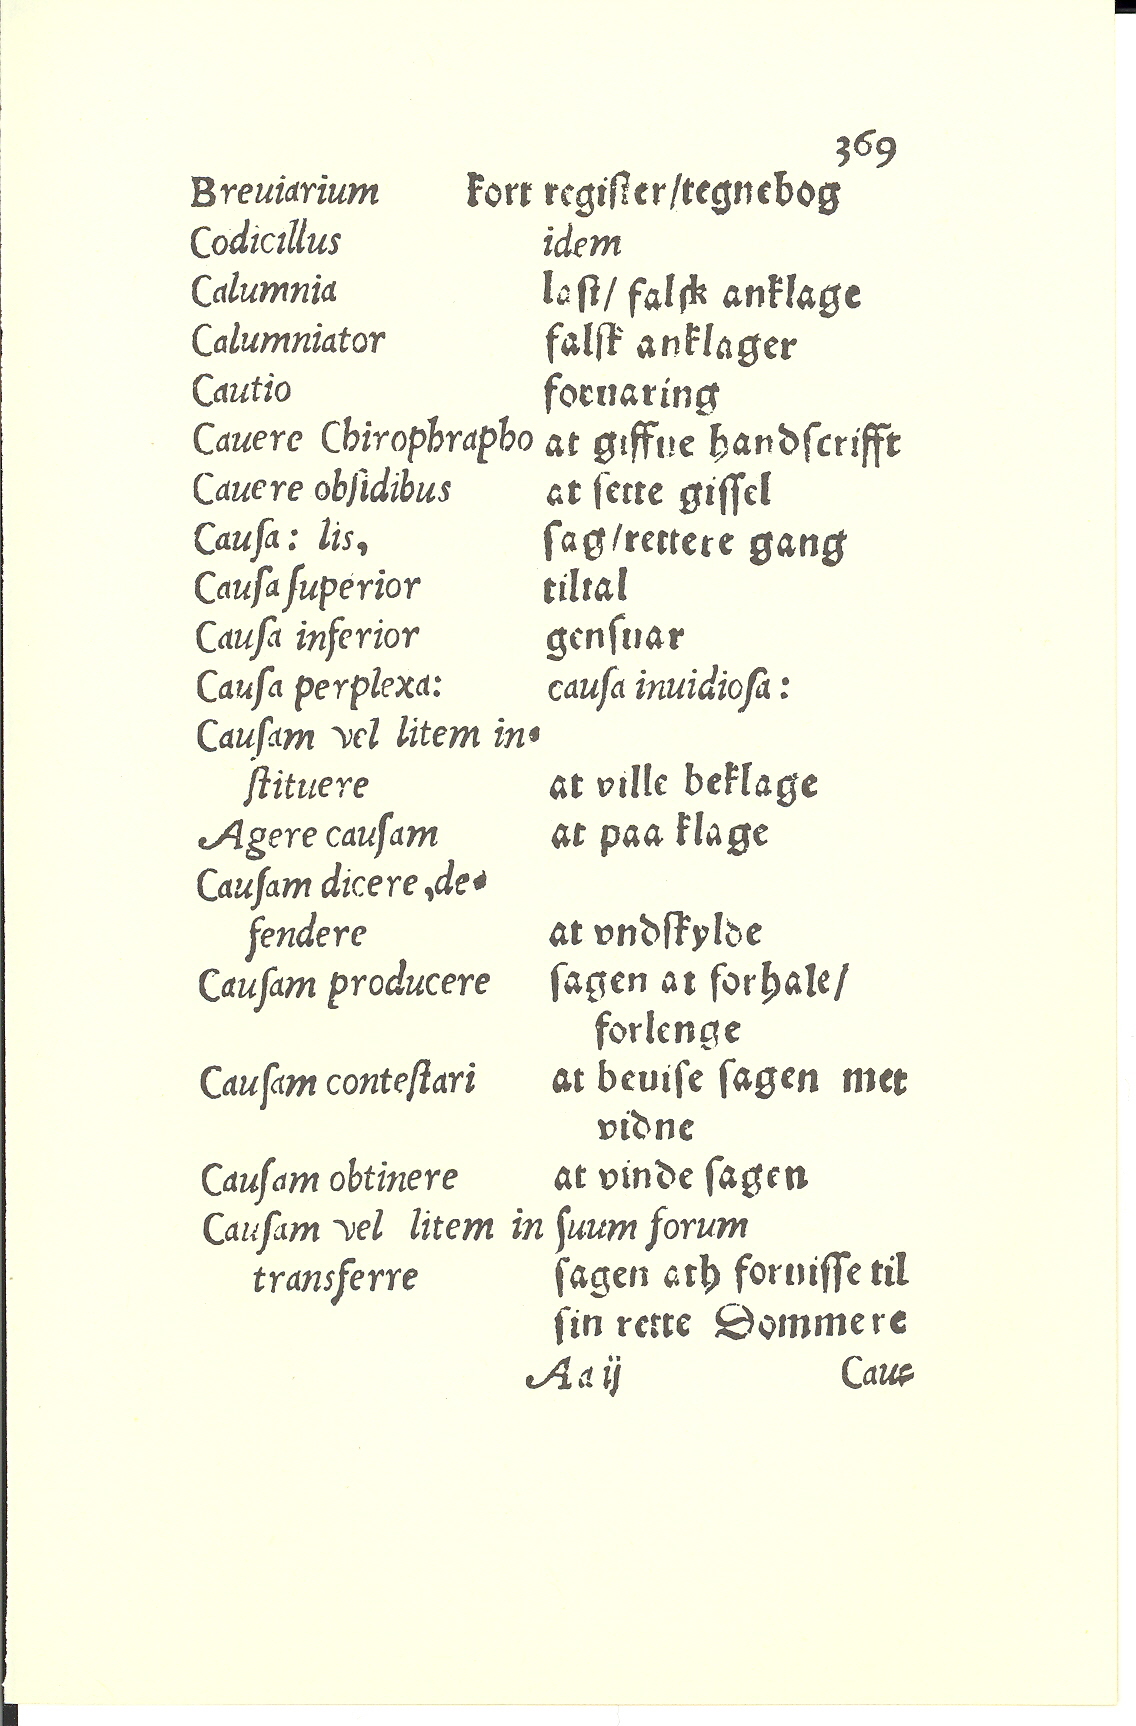 369
Breuiarium kort regiſter/tegnebog
Codicillus idem
Calumnia laſt/ falſk anklage
Calumniator falſk anklager
Cautio foruaring
Cauere Chirophrapho at giffue handſcrifft
Cauere obſidibus at ſette giſſel
Cauſa: lis, ſag/rettere gang
Cauſa ſuperior tiltal
Cauſa inferior genſuar
Cauſa perplexa: cauſa inuidioſa:
Cauſam vel litem in-
ſtituere at ville beklage
Agere cauſam at paa klage
Cauſam dicere,de-
fendere at vndſkylde
Cauſam producere ſagen at forhale/
forlenge
Cauſam conteſtari at beuiſe ſagen met
vidne
Cauſam obtinere at vinde ſagen
Cauſam vel litem in ſuum forum
transferre ſagen ath foruiſſe til
ſin rette Dommere
Aa ij Cau-